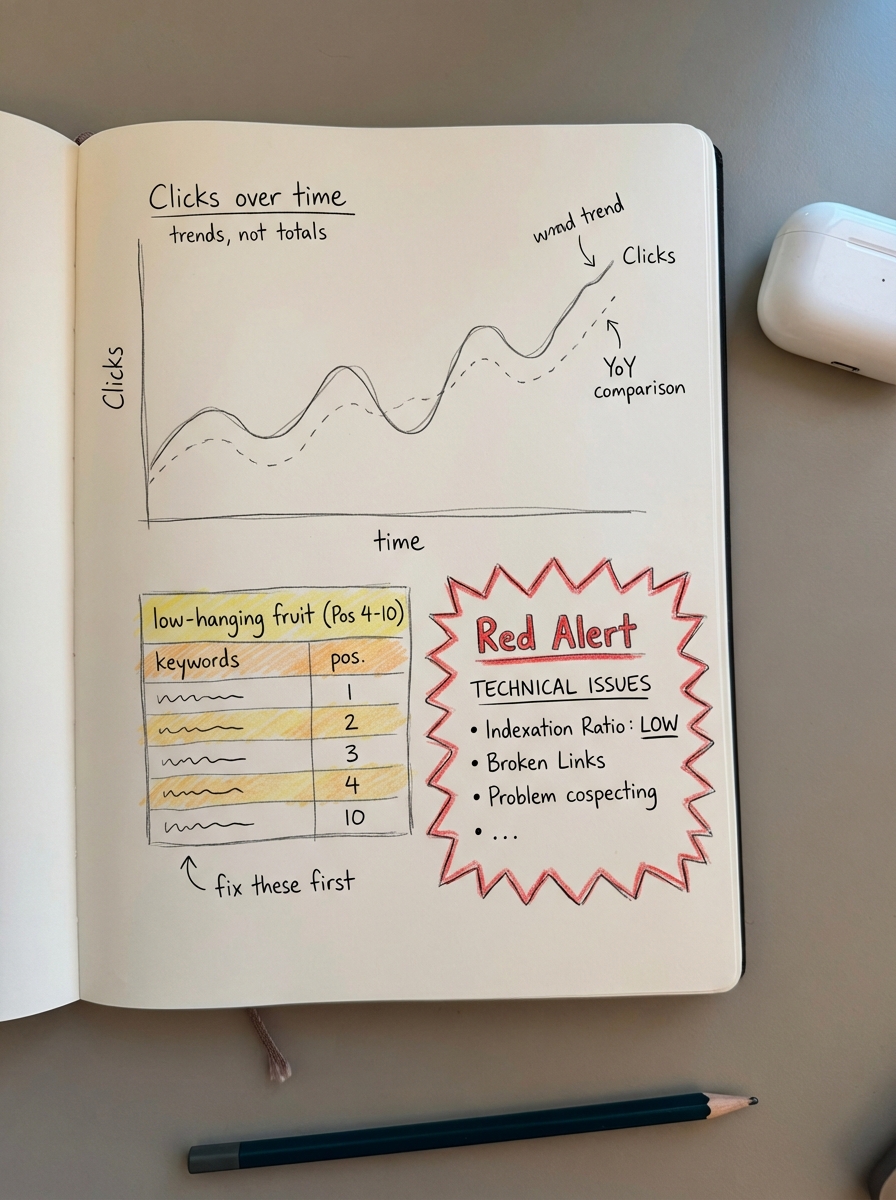 Clicks over time
trends, not totals
trend
Clicks
Clicks
YoY
comparison
time
low-hanging fruit (Pos 4-10)
keywords pos.
1
2
3
4
10
fix these first
Red Alert
TECHNICAL ISSUES
• Indexation Ratio: LOW
• Broken Links
• Problem cospecting
• ...